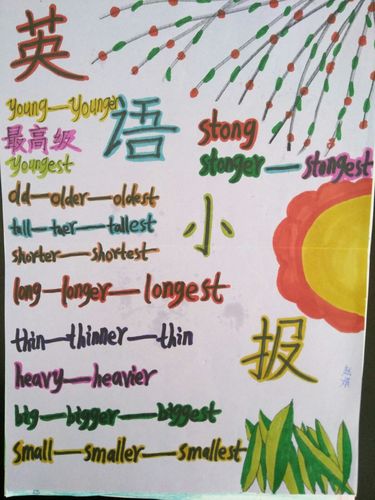 英
语
小
报
young—Younger
最高级
Youngest
old—older—oldest
tall—ther—tallest
shorter—shortest
long—longer—longest
thin—thinner—thin
heavy—heavier
big—bigger—biggest
small—smaller—smallest
stong
stonger—stongest